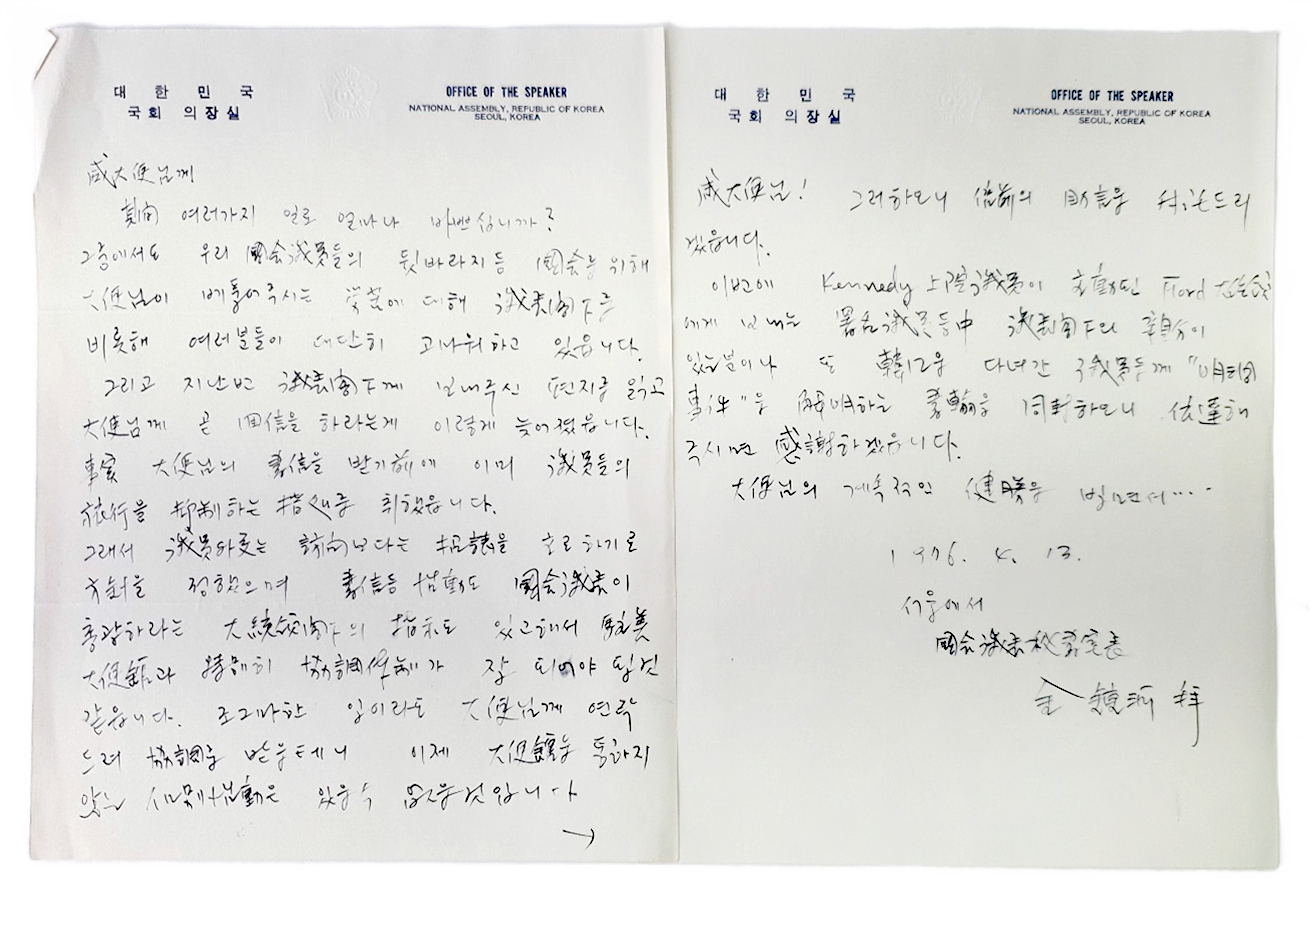 대 한 민 국
국회 의장실
OFFICE OF THE SPEAKER
NATIONAL ASSEMBLY, REPUBLIC OF KOREA
SEOUL, KOREA
咸大使님께
여러가지 일로 얼마나 바쁘십니까?
그중에서도 우리 國会议員들의 뒷바라지등 國会를 위해
大使님이 베풀어주시는 에 대해 议長閣下를
비롯해 여러분들이 대단히 고마워하고 있읍니다.
그리고 지난번 议長閣下께 보내주신 편지를 읽고
大使님께 곧 回信을 하라는게 이렇게 늦어졌읍니다.
事實 大使님의 書信을 받기前에 이미 议員들의
旅行을 抑制하는 措置를 취했읍니다.
그래서 议員 訪問보다는 招請을 으로 하기로
方針을 정했으며 書信등 活動도 國会议長이
총괄하라는 大統領閣下의 指示도 있고해서 駐美
大使館과 特別히 協調体制가 잘 되어야 될것
같읍니다. 조그마한 일이라도 大使님께 연락
드려 協調를 받을테니 이제 大使館을 통하지
않는 個別活動은 있을수 없을것입니다
→
대 한 민 국
국회 의장실
OFFICE OF THE SPEAKER
NATIONAL ASSEMBLY, REPUBLIC OF KOREA
SEOUL, KOREA
咸大使님! 그러하오니 倍前의 助言을 부탁드리
겠읍니다.
이번에 Kennedy 上院议員이 主動된 Ford 大統領
에게 보내는 署名议員들中 议長閣下와 親分이
있는분이나 또 韓國을 다녀간 议員들께 "明洞
事件"을 解明하는 書翰을 同封하오니 传達해
주시면 感謝하겠읍니다.
大使님의 계속적인 健勝을 빌면서....
1976. 4. 13.
서울에서
國会议長秘書室長
金 拜